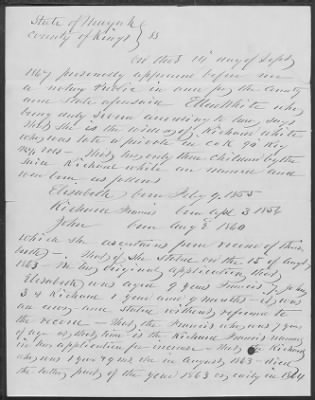 State of New York }
County of Kings } SS
On this 14 day of Sept
1867 personally appeared before me
a notary Public in and for the County
and State aforesaid Ellen White who
being duly Sworn according to law, says
that she is the widow of Richard White
who was late a private in Co K 90 Reg
NY Vols - That his only three Children by the
Said Richard White are named and
were born as follows
Elizabeth, born July 9. 1855
Richard Francis born Sept 3 1856
John born Aug 8 1860
which she ascertains from record of their
birth - That if She Stated on the 15 of Augt
1863 in her original application, that
Elizabeth was aged 9 years Francis 7, John
3 & Richard 1 year and 9 months - it was
an error and stated without reference to
the record - that the Francis who was 7 years
of age at that time is the Richard Francis named
in her application for increase - that the Richard
who was 1 year & 9 mos old in August, 1863 - died
the latter part of the year 1863 or early in 1864